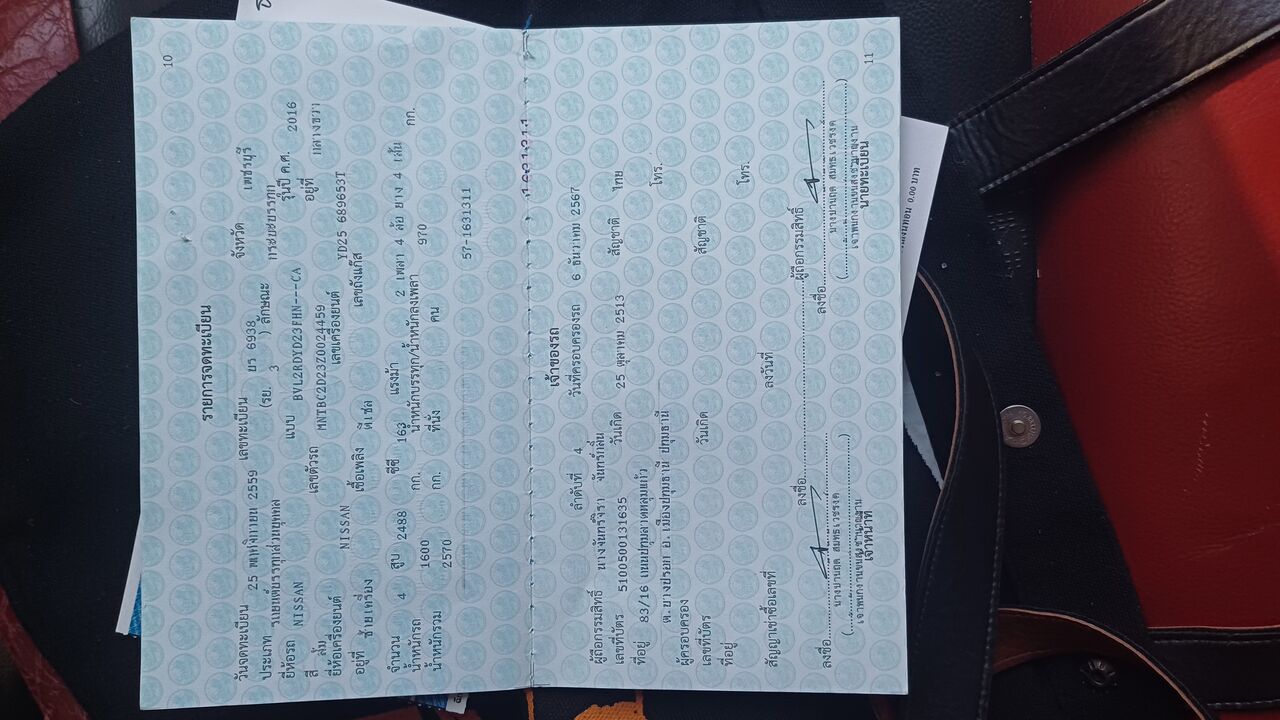 10
รายการจดทะเบียน
วันจดทะเบียน 25 พฤศจิกายน 2559 เลขทะเบียน ยร 6938 จังหวัด เพชรบุรี
ประเภท รถยนต์บรรทุกส่วนบุคคล (รย. 3 ) ลักษณะ กระบะบรรทุก
ยี่ห้อรถ NISSAN แบบ BVL2RDYD23FHN---CA รุ่นปี ค.ศ. 2016
สี เลขตัวรถ MNTBC2D23Z0024459 อยู่ที่ กลางขวา
ยี่ห้อเครื่องยนต์ NISSAN เลขเครื่องยนต์ YD25 689653T
อยู่ที่ ซ้ายเครื่อง เชื้อเพลิง ดีเซล เลขถังแก๊ส
จำนวน 4 สูบ 2488 ซีซี 163 แรงม้า 2 เพลา 4 ล้อ ยาง 4 เส้น
น้ำหนักรถ 1600 กก. น้ำหนักบรรทุก/น้ำหนักลงเพลา 970 กก.
น้ำหนักรวม 2570 กก. ที่นั่ง คน
57-1631311
เจ้าของรถ
ลำดับที่ 4 วันที่ครอบครองรถ 6 ธันวาคม 2567
ผู้ถือกรรมสิทธิ์ นางจันทร์จิรา จันทร์กลิ่น
เลขที่บัตร 5100500131635 วันเกิด 25 ตุลาคม 2513 สัญชาติ ไทย
ที่อยู่ 83/16 ถนนปทุมลาดหลุมแก้ว โทร.
ต.บางปรอก อ.เมืองปทุมธานี ปทุมธานี
ผู้ครอบครอง
เลขที่บัตร วันเกิด สัญชาติ
ที่อยู่ โทร.
สัญญาเช่าซื้อเลขที่ ลงวันที่
ลงชื่อ ผู้ถือกรรมสิทธิ์
ลงชื่อ ลงชื่อ
เจ้าหน้าที่ นายทะเบียน
11
0.00 บาท